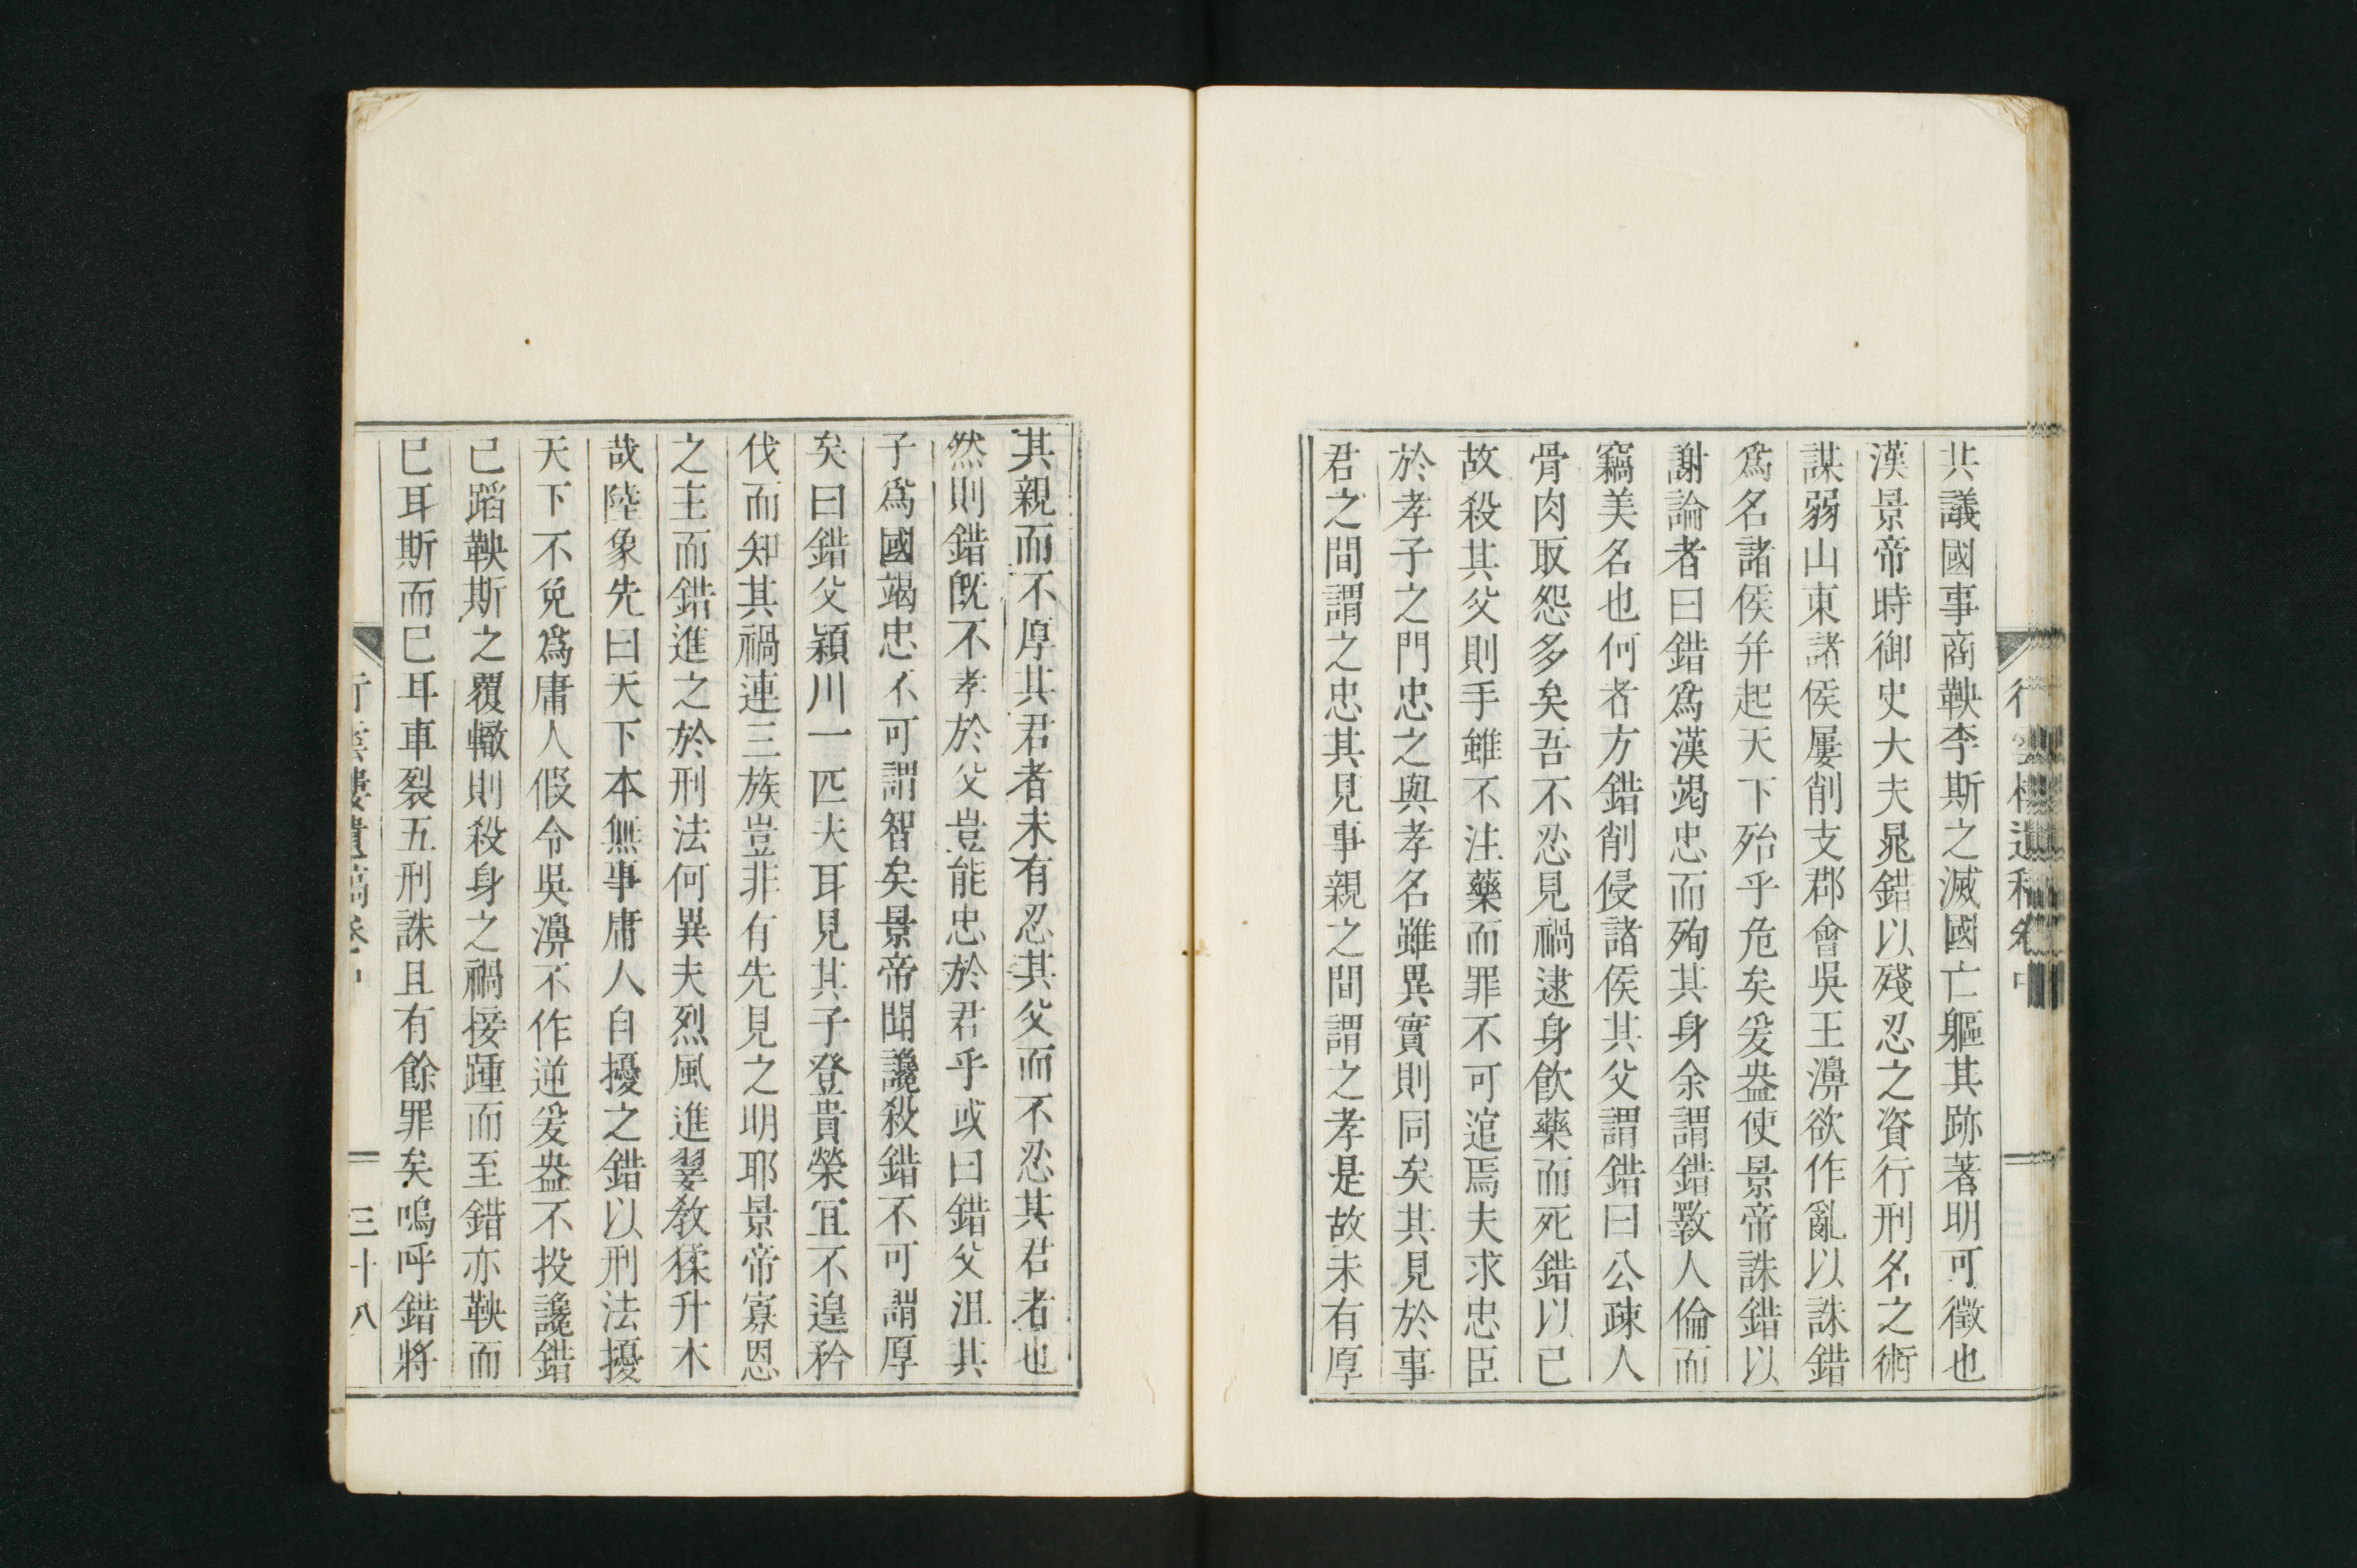 共議國事商鞅李斯之滅國亡軀其跡著明可徵也
漢景帝時御史大夫鼂錯以殘忍之資行刑名之術
謀弱山東諸侯屢削支郡會吳王濞欲作亂以誅錯
爲名諸侯幷起天下殆乎危矣爰盎使景帝誅錯以
謝論者曰錯爲漢竭忠而殉其身余謂錯斁人倫而
竊美名也何者方錯削侵諸侯其父謂錯曰公疎人
骨肉取怨多矣吾不忍見禍逮身飮藥而死錯以已
故殺其父則手雖不注藥而罪不可逭焉夫求忠臣
於孝子之門忠之與孝名雖異實則同矣其見於事
君之間謂之忠其見事親之間謂之孝是故未有厚
其親而不厚其君者未有忍其父而不忍其君者也
然則錯旣不孝於父豈能忠於君乎或曰錯父沮其
子爲國竭忠不可謂智矣景帝聞讒殺錯不可謂厚
矣曰錯父潁川一匹夫耳見其子登貴榮宜不遑矜
伐而知其禍連三族豈非有先見之明耶景帝寡恩
之主而錯進之於刑法何異夫烈風進翣敎猱升木
哉陸象先曰天下本無事庸人自擾之錯以刑法擾
天下不免爲庸人假令吳濞不作逆爰盎不投讒錯
已蹈鞅斯之覆轍則殺身之禍接踵而至錯亦鞅而
已耳斯而已耳車裂五刑誅且有餘罪矣嗚呼錯將
行雲樓遺稿卷中
三十八